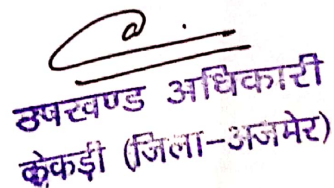 उपखण्ड अधिकारी
केकड़ी (जिला-अजमेर)